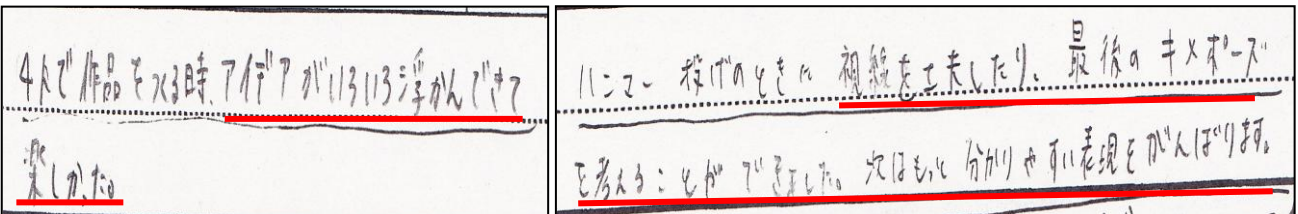 4人で作品をつくる時、アイデアがいろいろ浮かんできて
楽しかった。
ハンマー投げのときに視線を工夫したり、最後のキメポーズ
を考えることができました。次はもっと分かりやすい表現をがんばります。